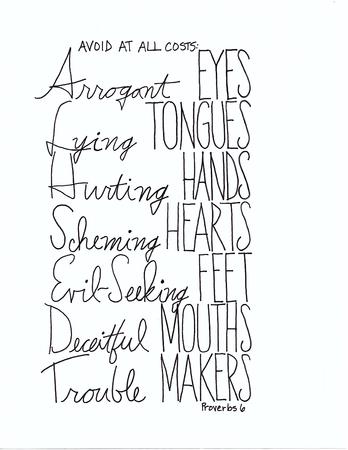 AVOID AT ALL COSTS:
Arrogant EYES
Lying TONGUES
Hurting HANDS
Scheming HEARTS
Evil-Seeking FEET
Deceitful MOUTHS
Trouble MAKERS
Proverbs 6